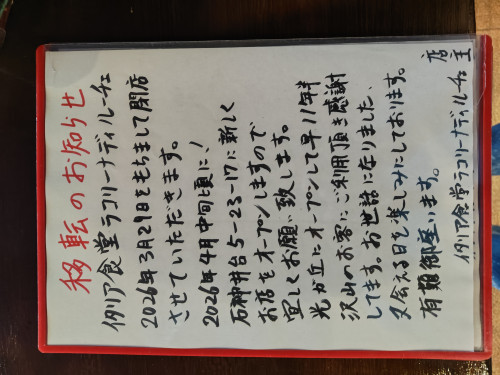 移転のお知らせ
イタリア食堂ラコリーナディルーチェ
2026年3月29日をもちまして閉店
させていただきます。
2026年4月中旬頃に、
石神井台5-23-17に新しく
お店をオープンしますので
宜しくお願い致します。
光が丘にオープンして早11年半
沢山のお客にご利用頂き感謝
してます。お世話になりました、
又会える日を楽しみにしております。
有難御座います。
イタリア食堂ラコリーナディルーチェ
店主